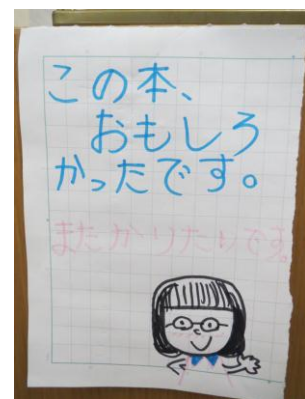 この本、
おもしろ
かったです。
またかりたいです。